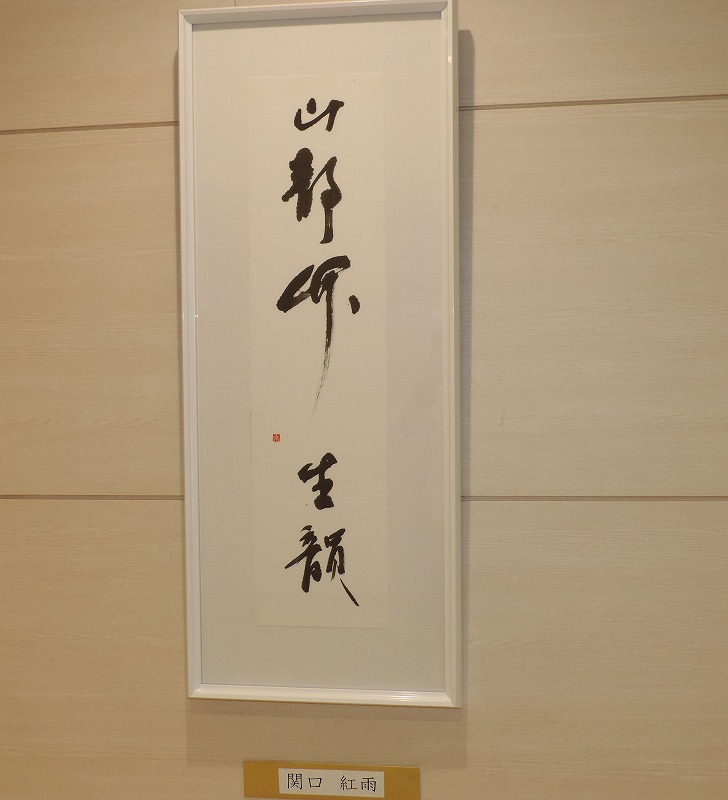 山静竹生韻
関口 紅雨